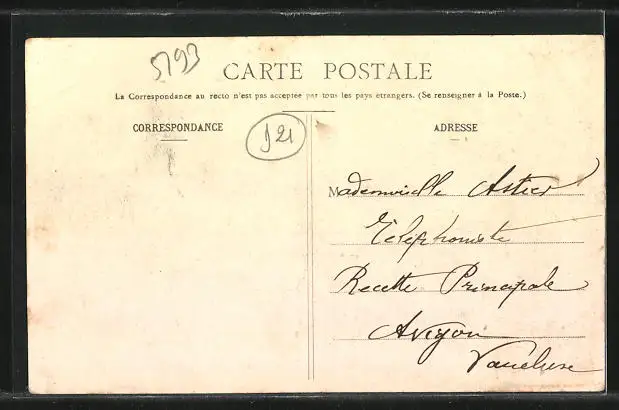 5793
CARTE POSTALE
La Correspondance au recto n'est pas acceptée par tous les pays étrangers. (Se renseigner à la Poste.)
CORRESPONDANCE
J21
ADRESSE
Mademoiselle Astier
Téléphoniste
Recette Principale
Avignon
Vaucluse